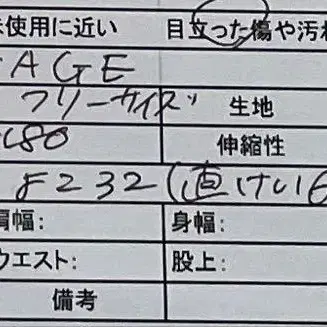 未使用に近い 目立った傷や汚れ
AGE
フリーサイズ 生地
180 伸縮性
F232(直けい6
肩幅: 身幅:
ウエスト: 股上:
備考